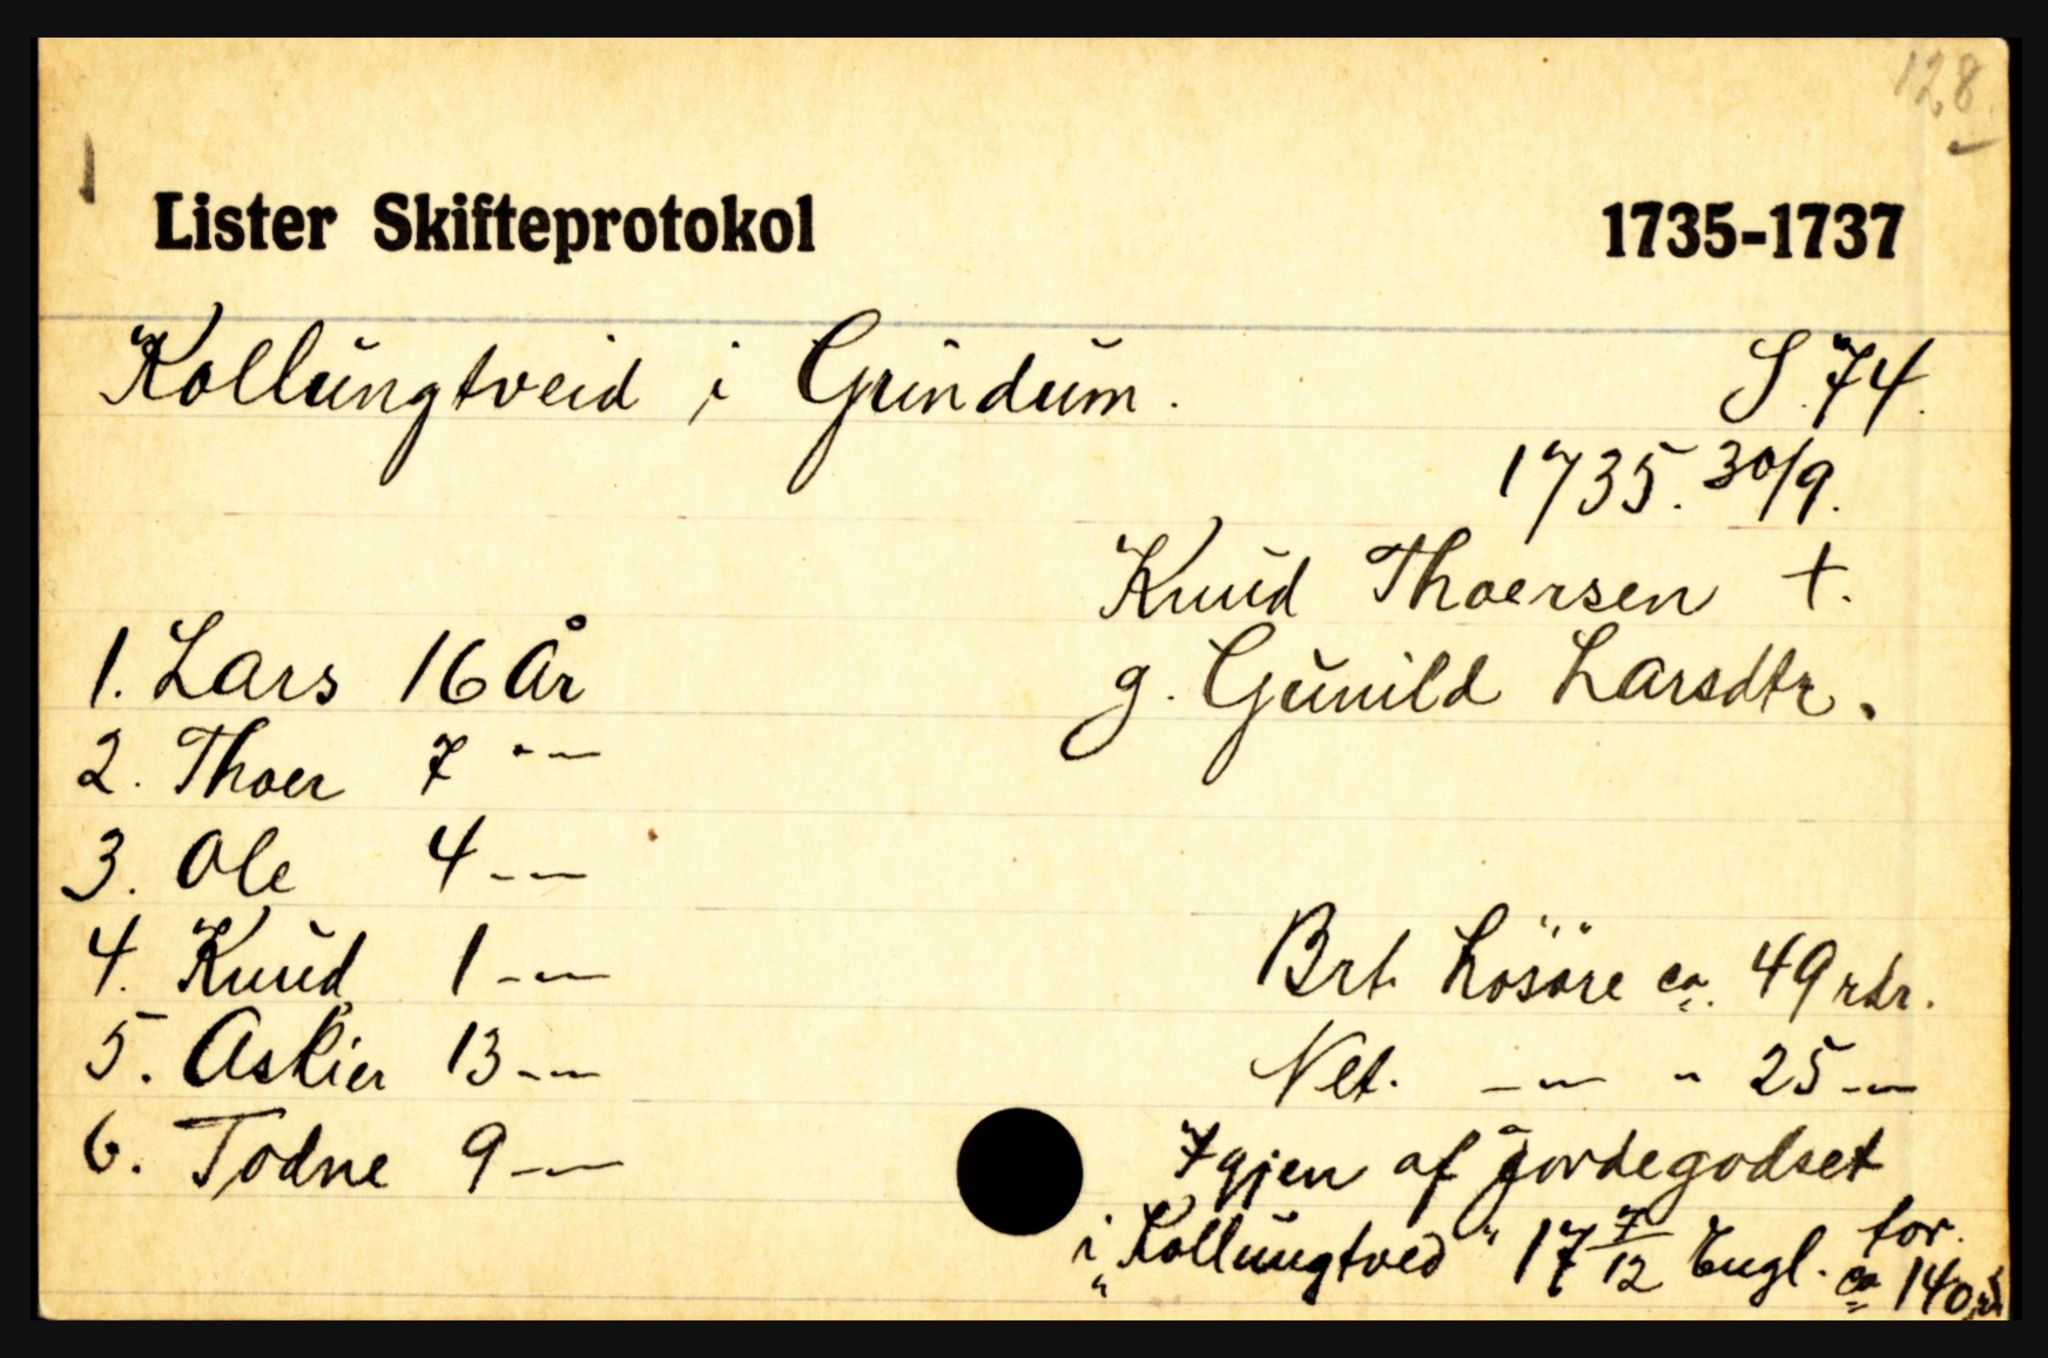 128.
1
Lister Skifteprotokol 1735-1737
Kollungtveid i Grindum. S. 74.
1735. 30/9.
Knud Thoersen +.
1. Lars 16 År g. Gunild Larsdtr.
2. Thoer 7 -"-
3. Ole 4 -"-
4. Knud 1 -"- Brt. Løsøre ca. 49 rdr.
5. Askier 13 -"- Net. -"- " 25 -"-
6. Todne 9 -"- Igjen af Jordegodset
i "Kollungtved" 17 7/12 Engl. for ca 140 rd.